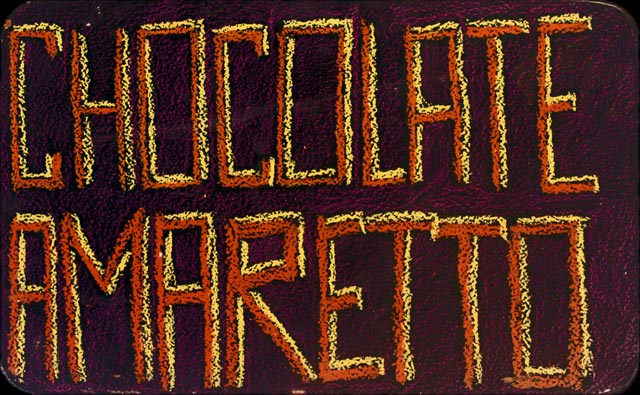 CHOCOLATE
AMARETTO